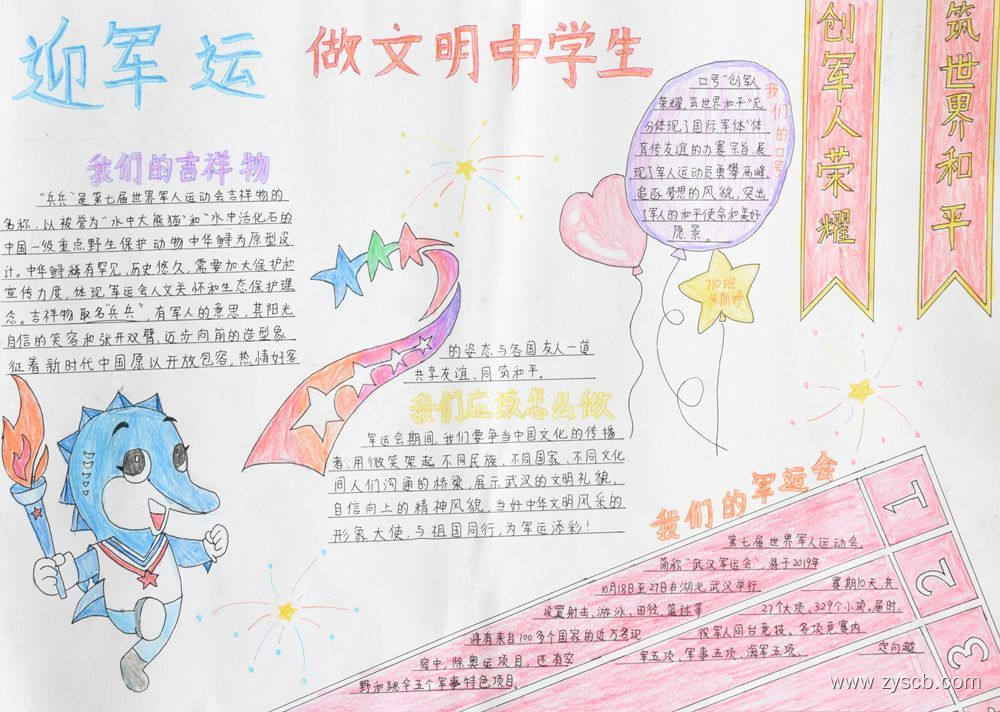 迎军运
做文明中学生
创军人荣耀
筑世界和平
我们的吉祥物
“兵兵”是第七届世界军人运动会吉祥物的
名称，以被誉为“水中大熊猫”和“水中活化石的
中国一级重点野生保护动物中华鲟为原型设
计。中华鲟稀有罕见，历史悠久，需要加大保护和
宣传力度，体现军运会人文关怀和生态保护理
念。吉祥物取名“兵兵”，有军人的意思，其阳光
自信的笑容和张开双臂，迈步向前的造型象
征着新时代中国愿以开放包容，热情好客
的姿态与各国友人一道
共享友谊、同筑和平。
我们的口号
口号“创军人
荣耀，筑世界和平”充
分体现了国际军体“体
育传友谊的办赛宗旨，展
现了军人运动员勇攀高峰
追逐梦想的风貌，突出
了军人的和平使命和美好
愿景。
710班
我们应该怎么做
军运会期间，我们要争当中国文化的传播
者，用微笑架起不同民族、不同国家、不同文化
间人们沟通的桥梁，展示武汉的文明礼貌、
自信向上的精神风貌，当好中华文明风采的
形象大使，与祖国同行，为军运添彩！
我们的军运会
第七届世界军人运动会，
简称“武汉军运会”，将于2019年
10月18日至27日在湖北武汉举行，赛期10天，共
设置射击、游泳、田径、篮球等27个大项、329个小项。届时，
将有来自100多个国家的近万名现役军人同台竞技。各项竞赛内
容中，除奥运项目，还有空军五项、军事五项、海军五项、定向越
野和跳伞五个军事特色项目。
1
2
3
www.zyscb.com